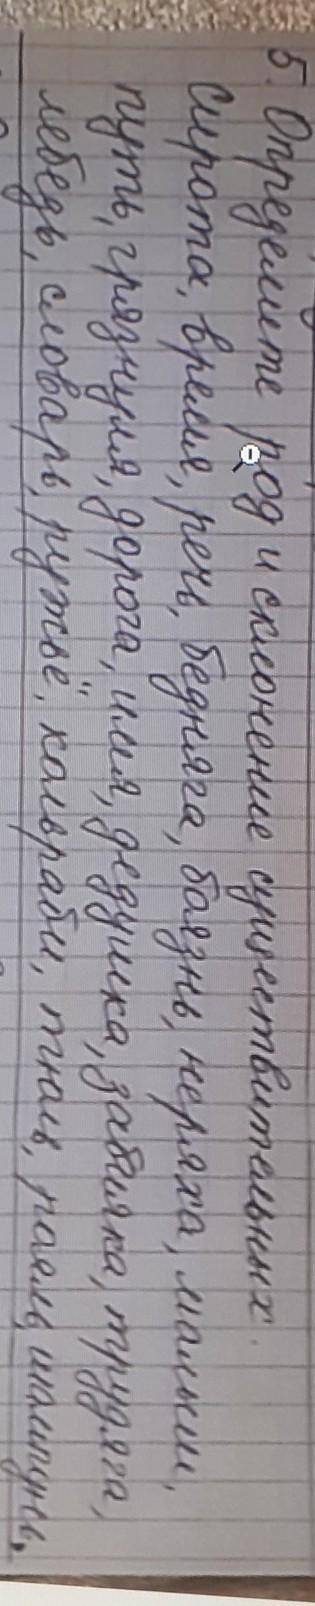 5. Определите род и склонение существительных.
Сирота, время, речь, бедняга, боязнь, неряха, малыш,
путь, грязнуля, дорога, имя, дедушка, забияка, трудяга,
лебедь, словарь, ружьё, кольраби, тюль, рояль, шампунь,